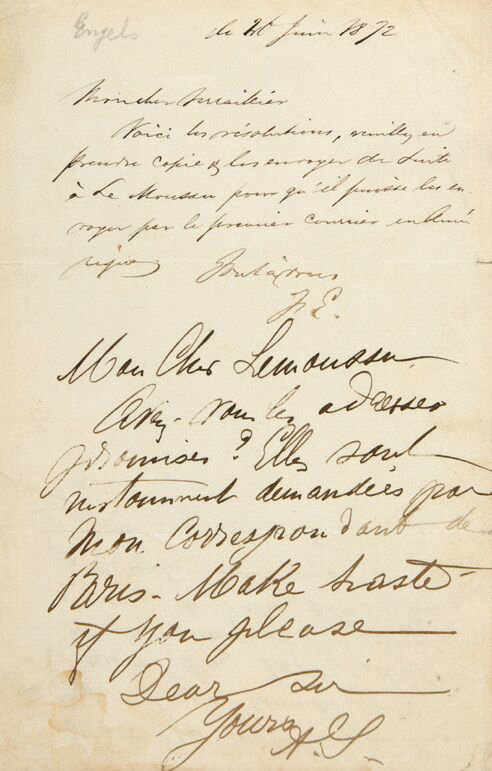 Engels
le 20 Juin 1872
Mon cher Serraillier
Voici les résolutions, veuillez en
prendre copie & les envoyer de suite
à Le Moussu pour qu'il puisse les en
voyer par le premier courrier en Amé
rique
Tout à vous
F. E.
Mon Cher Lemoussu
Avez-vous les adresses
promises? Elles sont
instamment demandées par
mon Correspondant de
Paris - Make haste
if you please
Dear sir
Yours A. S.